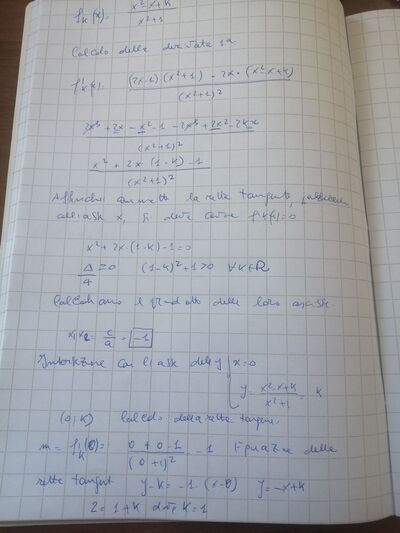 fₖ(x)= (x²-x+k)/(x²+1)
Calcolo della derivata 1a
f'ₖ(x)= ((2x-1)(x²+1) - 2x·(x²-x+k))/(x²+1)²
(2x³+2x-x²-1-2x³+2x²-2kx)/(x²+1)²
(x²+2x·(1-k)-1)/(x²+1)²
Affinché ammetta la retta tangente parallela
all'asse x, si deve avere f'ₖ(x)=0
x²+2x·(1-k)-1=0
Δ/4 ≥0 (1-k)²+1>0 ∀k∈R
Calcoliamo il prodotto delle loro ascisse
x₁x₂= c/a = -1
Intersezione con l'asse delle y { x=0
y= (x²-x+k)/(x²+1) = k
(0;k) Calcolo della retta tangente
m= f'ₖ(0)= (0+0-1)/(0+1)² = -1 Equazione della
retta tangent y-k=-1·(x-0) y=-x+k
2=1+k k=1